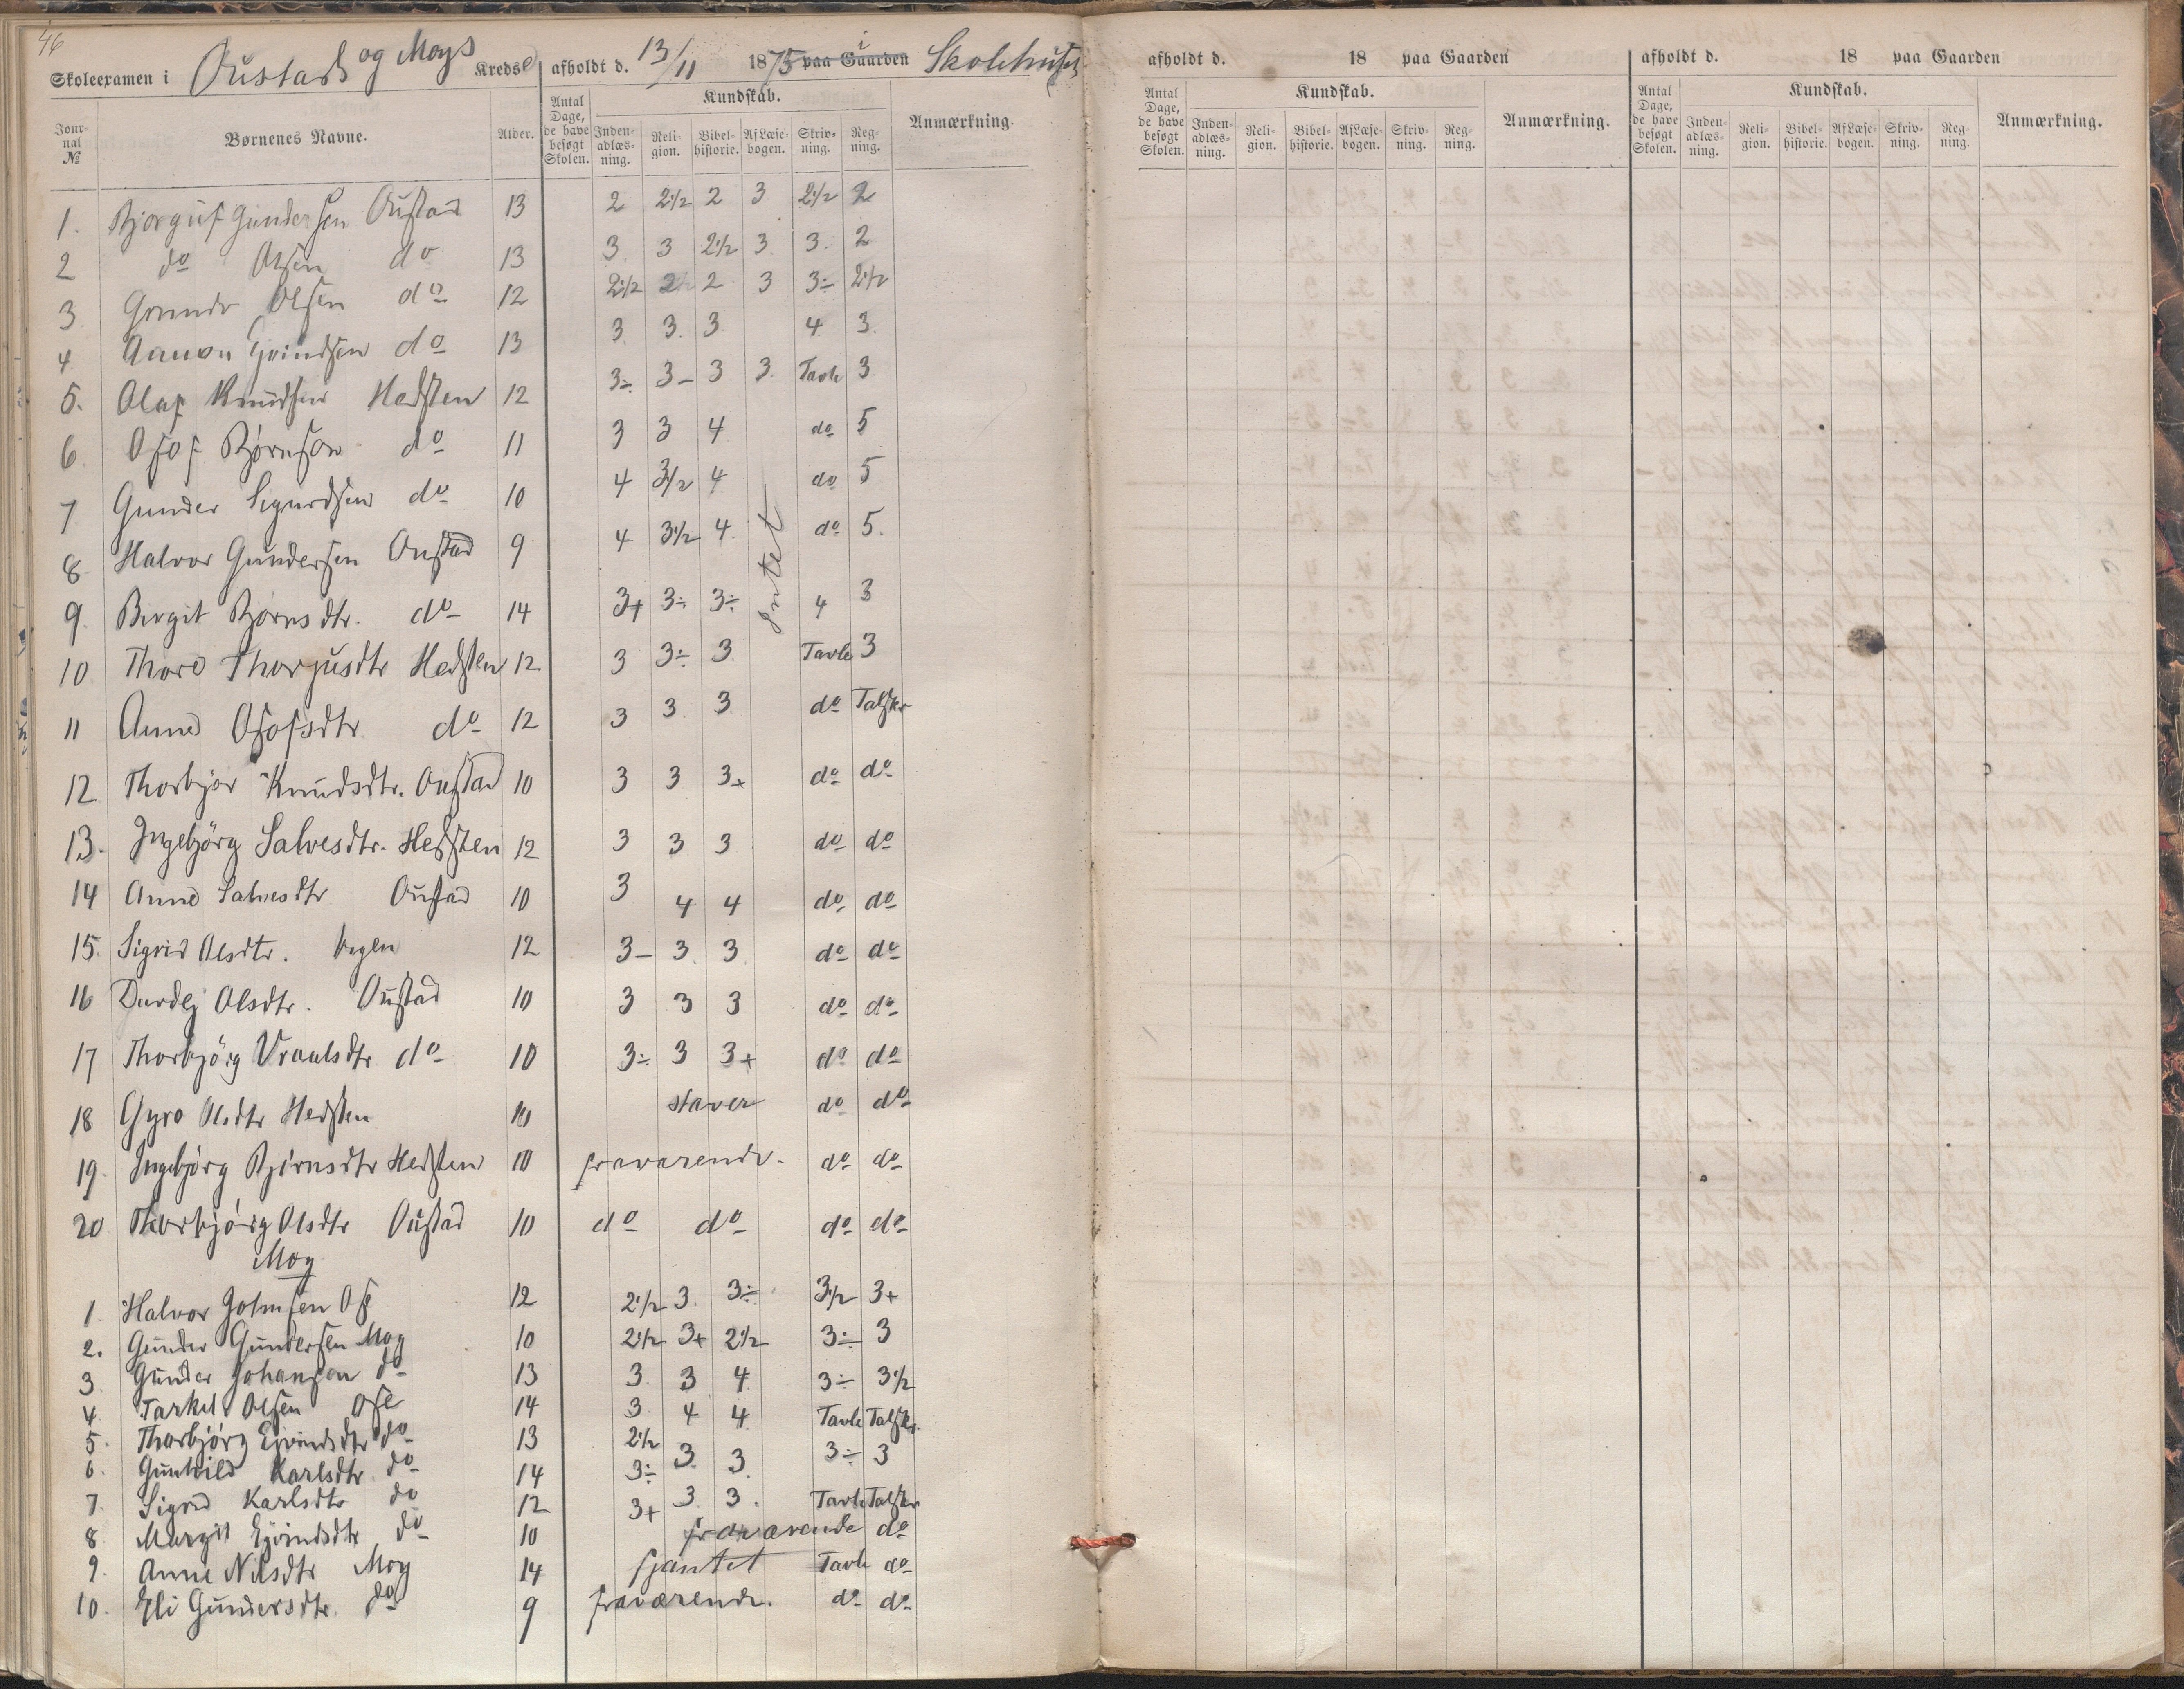 46
Skoleexamen i Oustads og Moys Kredse afholdt d. 13/11 1875 paa Gaarden i Skolehuset
Jour-nal № Børnenes Navne. Alder. Antal Dage, de have besøgt Skolen. Kundskab. Anmærkning.
Inden-adlæs-ning. Reli-gion. Bibel-historie. Af Læse-bogen. Skriv-ning. Reg-ning.
1. Bjorguf Gundersen Oustad 13 2 2½ 2 3 2½ 2
2 do Olsen do 13 3 3 2½ 3 3. 2
3 Gunder Olsen do 12 2½ 2½ 2 3 3÷ 2½
4 Aanon Eivindsen do 13 3 3. 3 4 3.
5. Olaf Knudsen Hedsten 12 3÷ 3- 3 3 Tavle 3
6. Osof Bjørnson do 11 3 3 4 do 5
7 Gunder Sigurdsen do 10 4 3½ 4 do 5
8 Halvor Gundersen Oustad 9 4 3½ 4. do 5.
Intet
9. Birgit Bjørnsdtr. do 14 3+ 3÷ 3÷ 4 3
10 Thore Thorjusdtr Hedsten 12 3 3÷ 3 Tavle 3
11 Anne Osofsdtr do 12 3 3 3 do Talskr
12 Thorbjør Knudsdtr. Oustad 10 3 3 3+ do do
13. Ingebjörg Salvesdtr. Hedsten 12 3 3 3 do do
14 Anne Salvesdtr Oustad 10 3 4 4 do do
15. Sigrid Olsdtr. 12 3- 3 3 do do
16 Durdej Olsdtr. Oustad 10 3 3 3 do do
17 Thorbjörg Vraalsdtr do 10 3÷ 3 3+ do do
18 Gyro Olsdtr Hedsten 10 staver do do
19. Ingebjörg Bjørnsdtr Hedsten 10 fraværende. do do
20 Thorbjörg Olsdtr Oustad 10 do do do do
Moy
1. Halvor Johnsen Ose 12 2½ 3. 3÷ 3½ 3+
2. Gunder Gundersen Moy 10 2½ 3+ 2½ 3÷ 3
3 Gunder Johanson do 13 3 3 4 3÷ 3½
4. Tarkel Olsen Ose 14 3 4 4 Tavle Talskr.
5. Thorbjörg Eivindsdtr do 13 2½ 3 3 3÷ 3
6. Gunhild Karlsdtr do 14 3÷
7. Sigrid Karlsdtr do 12 3+ 3 3. Tavle Talskr
8 Margit Ejvindsdtr do 10 fraværende do
9. Anne Nilsdtr Moy 14 fjantet Tavle do
10. Eli Gundersdtr. do 9 fraværende. do do
afholdt d. 18 paa Gaarden
Antal Dage, de have besøgt Skolen. Kundskab. Anmærkning.
Inden-adlæs-ning. Reli-gion. Bibel-historie. Af Læse-bogen. Skriv-ning. Reg-ning.
afholdt d. 18 paa Gaarden
Antal Dage, de have besøgt Skolen. Kundskab. Anmærkning.
Inden-adlæs-ning. Reli-gion. Bibel-historie. Af Læse-bogen. Skriv-ning. Reg-ning.